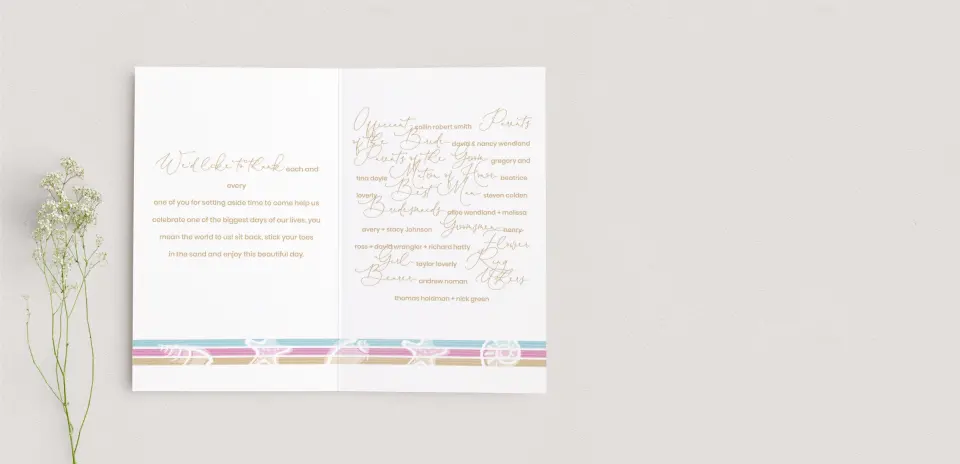 We'd like to thank each and
every
one of you for setting aside time to come help us
celebrate one of the biggest days of our lives, you
mean the world to us! sit back, stick your toes
in the sand and enjoy this beautiful day.
Officiant robert smith Parents
of the Bride david & nancy wendland
Parents of the Groom gregory and
tina doyle Matron of Honor beatrice
loverly Best Man steven colden
Bridesmaids alice wendland + melissa
avery + tracy Johnson Groomsmen
ross + david wrangler + richard hatty Flower
Girl taylor loverly Ring
Bearer andrew noman Ushers
thomas haldman + nick green